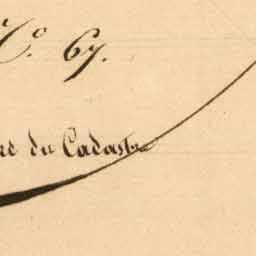 N.º 67.
re du Cadastre